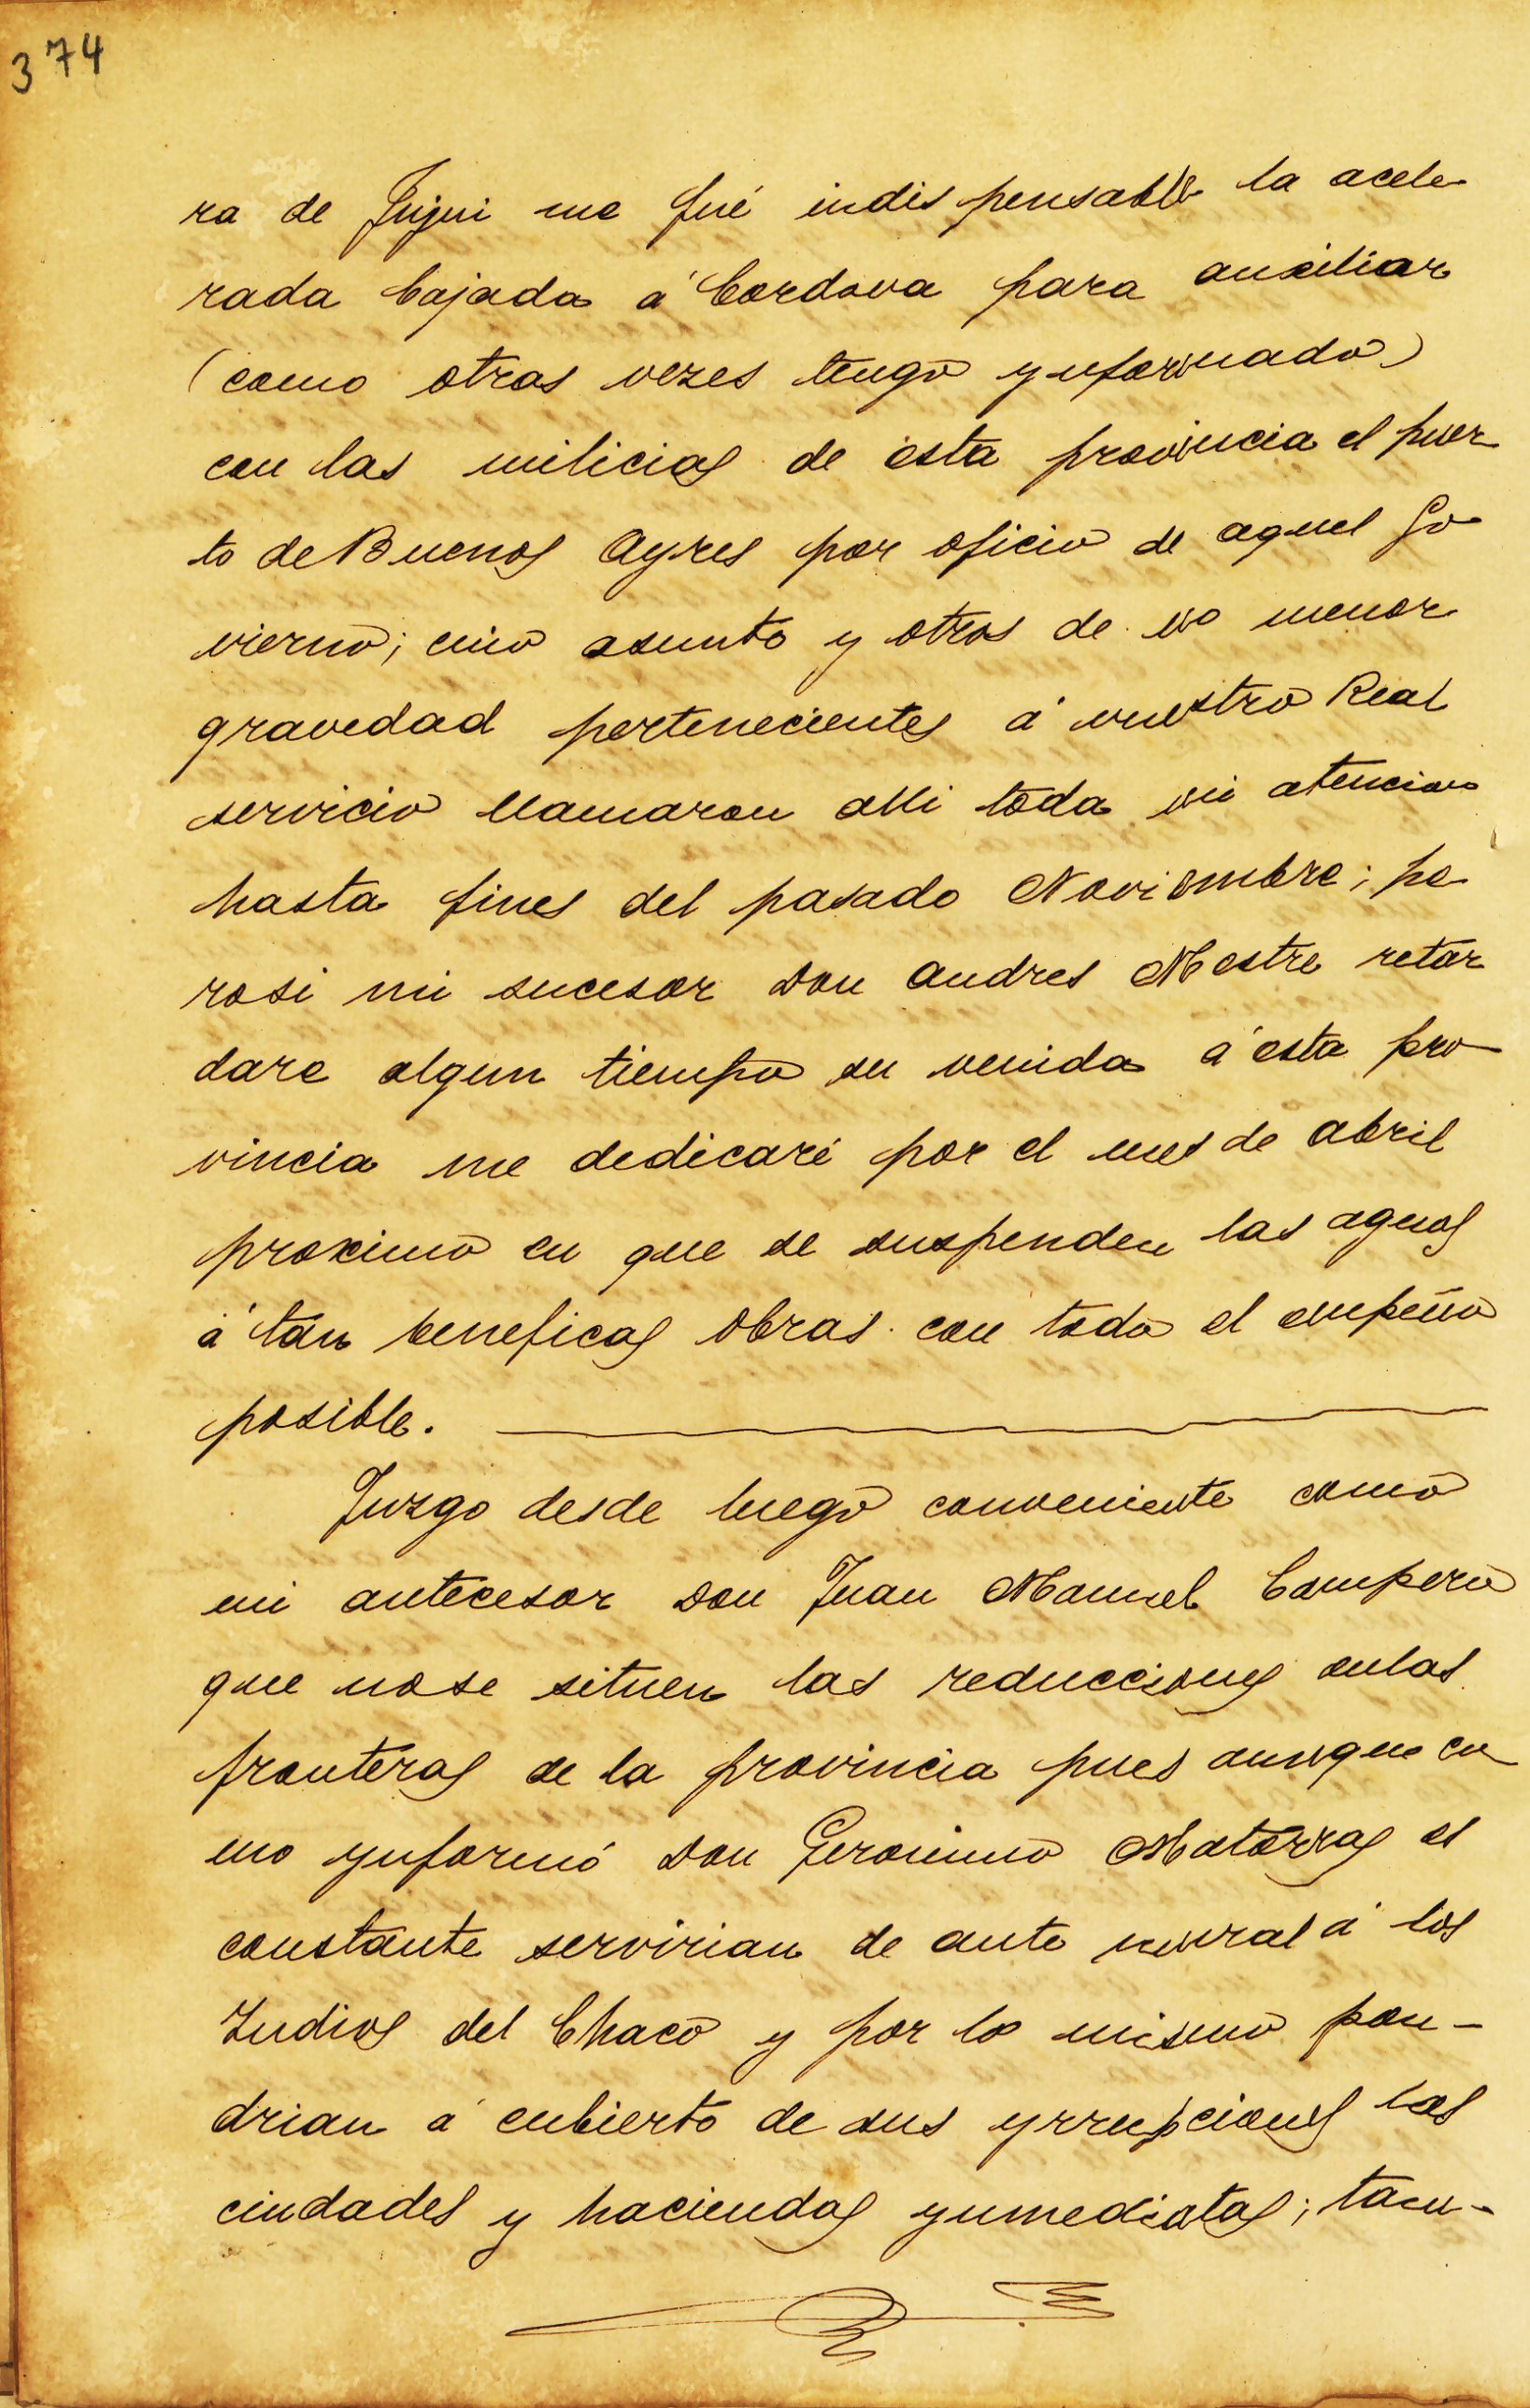 374
ra de Jujui me fué indispensable la acele-
rada bajada á Cordova para auxiliar
(como otras vezes tengo ynformado)
con las milicias de esta provincia el puer-
to de Buenos Ayres por oficio de aquel Go-
vierno; cuio asunto y otros de no menor
gravedad pertenecientes á vuestro Real
servicio llamaron alli toda mi atencion
hasta fines del pasado Noviembre; pe-
rosi mi sucesor Don Andres Mestre retar
dare algun tiempo su venida á esta pro-
vincia me dedicaré por el mes de abril
proximo en que se suspenden las aguas
á tan beneficas obras con todo el empeño
posible.
Juzgo desde luego conveniente como
mi antecesor Don Juan Manuel Campero
que nose situen las reducciones enlas
fronteras de la provincia pues aunque co-
mo ynformó Don Geronimo Matorras es
constante servirian de ante mural á los
Indios del Chaco y por lo mismo pon-
drian á cubierto de sus yrrupciones las
ciudades y haciendas ynmediatas; tam-